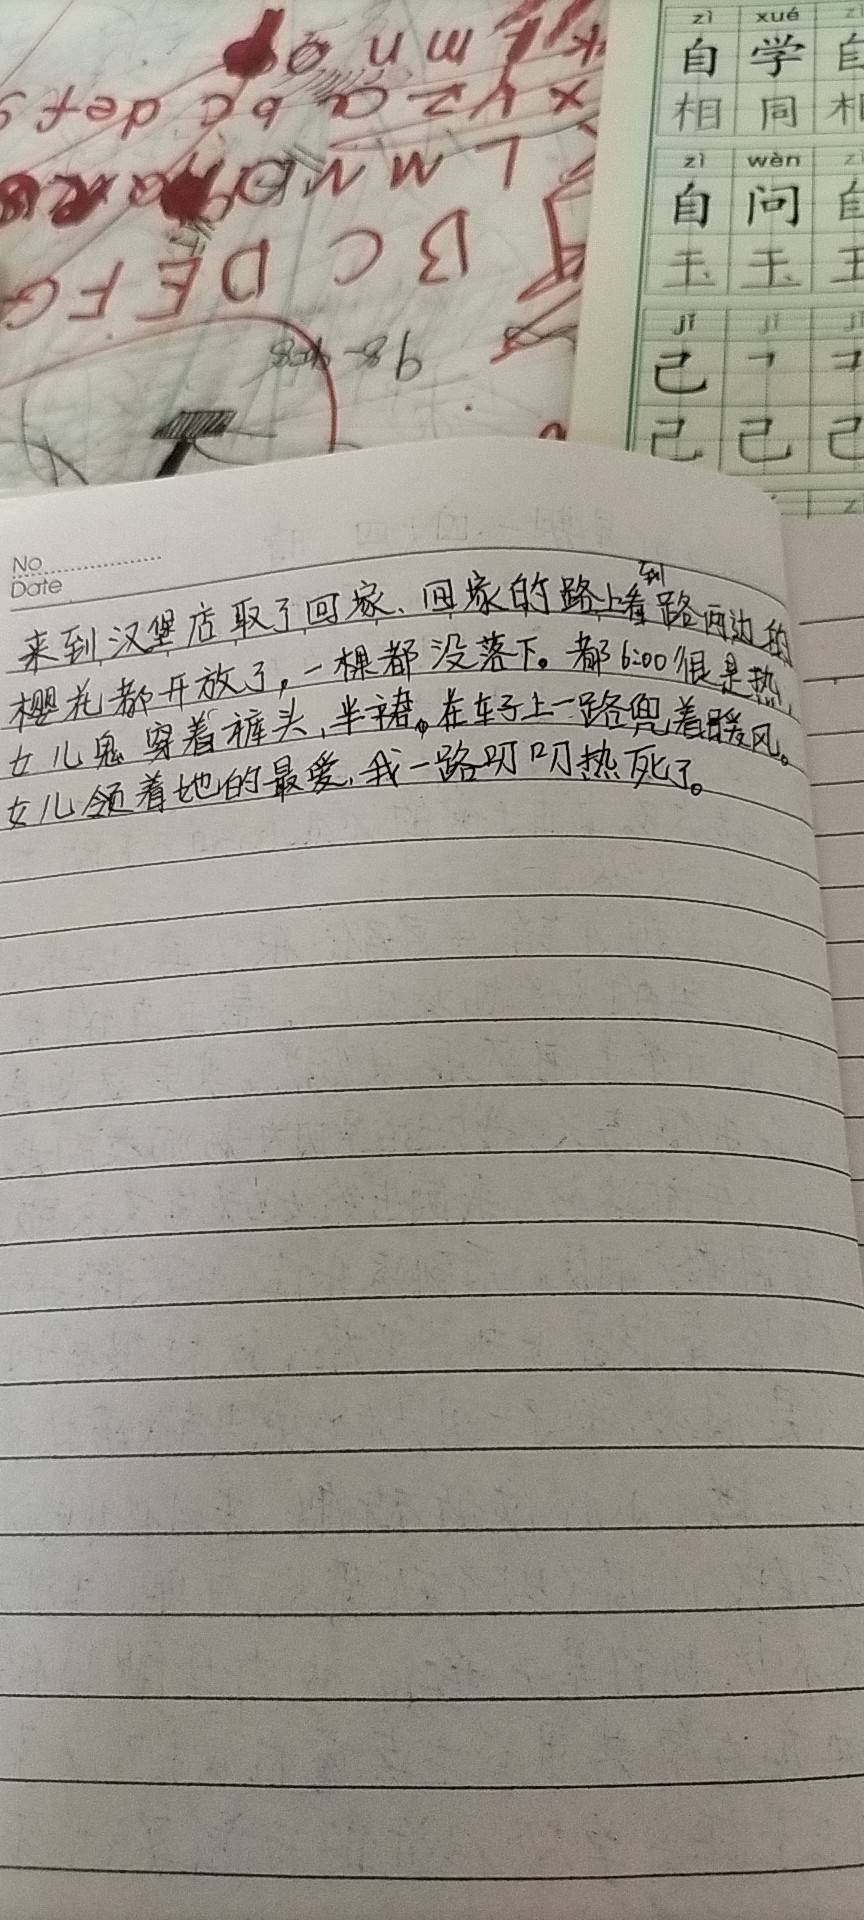 zì xué
自 学 自
相 同 相
zì wèn
自 问 自
玉 玉 玉
jǐ jǐ
己
己 己 己
A B C D E F G
L M N
x y z a b c d e f g
k m n
No
Date
来到汉堡店取了回家、回家的路上看到路两边的
樱花都开放了,一棵都没落下。都6:00很是热,
女儿 穿着裤头,半裙。在车子上一路兜着暖风。
女儿领着她的最爱,我一路叨叨热死了。